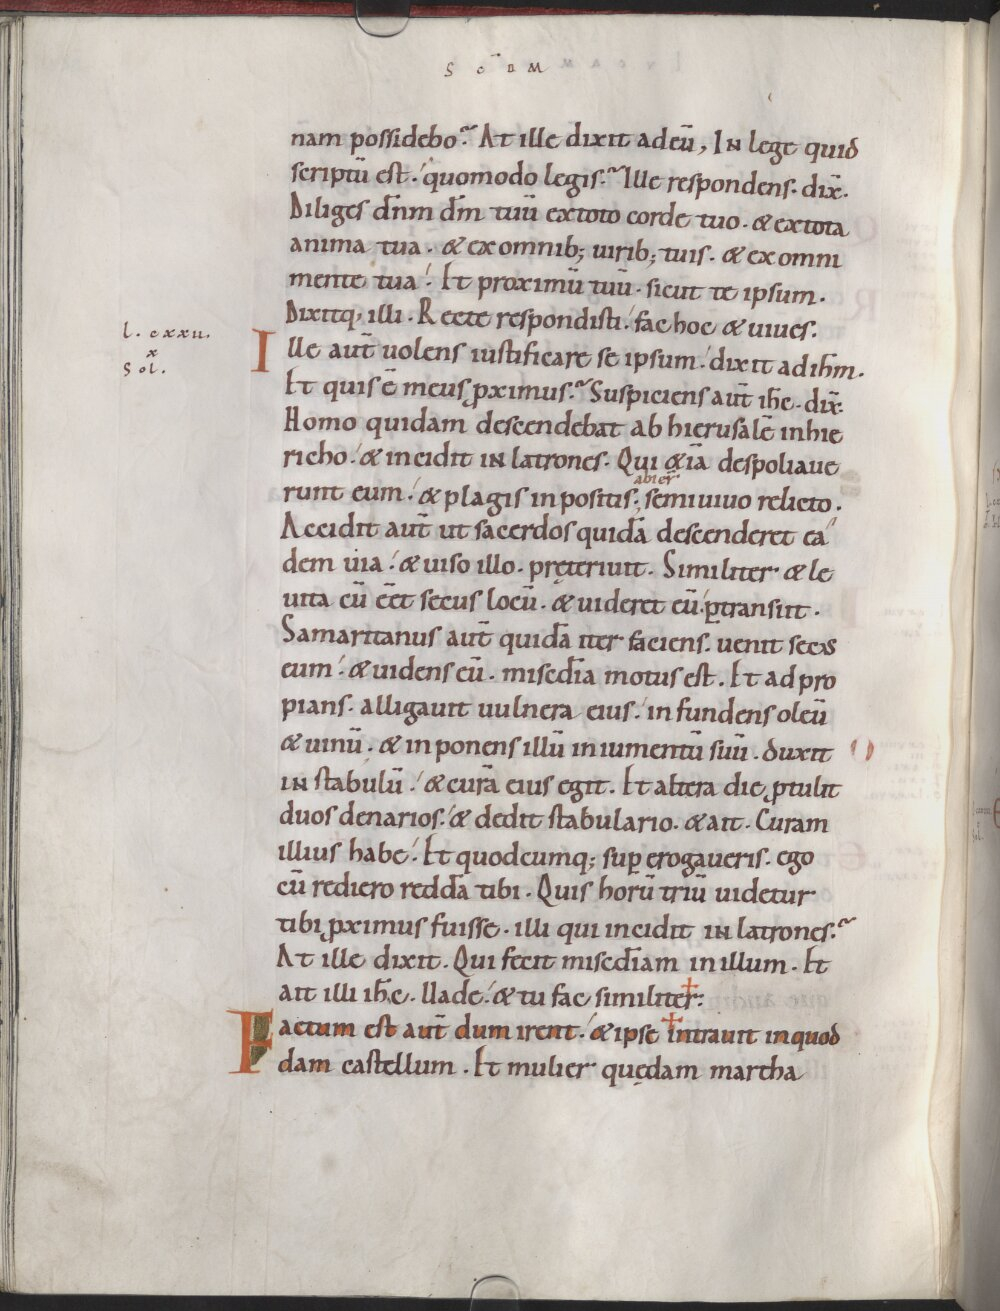 SCDM
nam possidebo? At ille dixit adeū, IN lege quid
scriptū est. quomodo legis? Ille respondens. dix̄.
Diliges dn̄m dm̄ tuū extoto corde tuo. & extota
anima tua. & ex omnib; uirib; tuis. & ex omni
mente tua. Et proximū tuū. sicut te ipsum.
Dixitq; illi. Recte respondisti. fac hoc & uiues.
l. cxxu.
x
Sol.
Ille aut̄ uolens iustificare se ipsum. dixit ad ih̄m.
Et quis ē meus ꝓximus? Suspiciens aut̄ ih̄c. dix̄.
Homo quidam descendebat ab hierusalē inhie
richo. & incidit IN latrones. Qui &iā despoliaue
abier̄
runt eum. & plagis inpositis; semiuiuo relicto.
Accidit aut̄ ut sacerdos quidā descenderet eā
dem uia. & uiso illo. pręteriuit. Similiter & le
uita cū eēt secus locū. & uideret eū. ꝑtransiit.
Samaritanus aut̄ quidā iter faciens. uenit secus
eum. & uidens eū. misedīa motus est. Et ad pro
pians. alligauit uulnera eius. infundens oleū
& uinū. & inponens illū iniumentū suū. duxit
IN stabulū. & curā eius egit. Et altera die ꝓtulit
duos denarios. & dedit stabulario. & ait. Curam
illius habe. Et quodcumq; suꝑ erogaueris. ego
cū rediero reddā tibi. Quis horū triū uidetur
tibi ꝓximus fuisse. illi qui incidit IN latrones?
At ille dixit. Qui fecit misedīam inillum. Et
ait illi ih̄c. Uade. & tu fac similiter.
Factum est aut̄ dum irent. & ipse intrauit inquod
dam castellum. Et mulier quędam martha